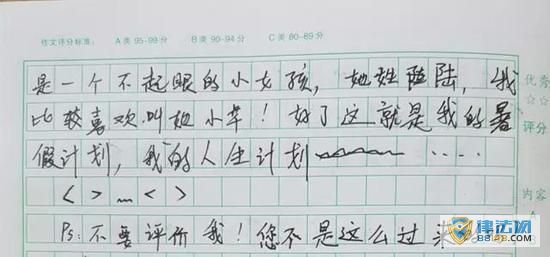 作文评分标准: A类 95-99分 B类 90-94分 C类 80-89分
是一个不起眼的小女孩,她姓陆,我
优秀
比较喜欢叫她小苹!好了这就是我的暑
评分
假计划,我的人生计划 ····
< > … < >
内容
Ps:不要评价我!您不是这么过来
律法网